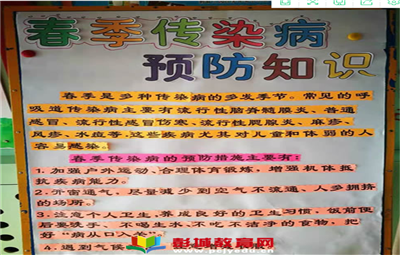 春季传染病
预防知识
春季是多种传染病的多发季节。常见的呼
吸道传染病主要有流行性脑脊髓膜炎、普通
感冒、流行性感冒伤寒、流行性腮腺炎、麻疹、
风疹、水痘等。这些疾病尤其对儿童和体弱的人
容易感染。
春季传染病的预防措施主要有:
1.加强户外运动、合理体育锻炼,增强机体抵
抗疾病能力。
2.外宿通气,尽量减少到空气不流通、人多拥挤
的场所。
3.注意个人卫生,养成良好的卫生习惯,饭前便
后要洗手、不喝生水、不吃不洁净的食物,把
好“病从口入关”。
4.遇到气候
彭城教育网